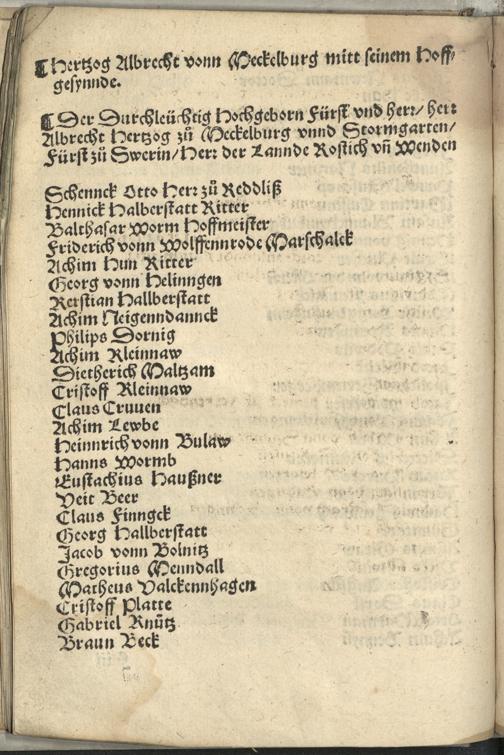 ¶ Hertzog Albrecht vonn Meckelburg mitt seinem Hoff/
gesynnde.
¶ Der Durchleüchtig Hochgeborn Fürst vnd herr/ herr
Albrecht Hertzog zů Meckelburg vnnd Stormgarten/
Fürst zů Swerin/ Herr der Lannde Rostich vñ Wenden
Schennck Otto Herr zů Reddliß
Hennick Halberstatt Ritter
Balthasar Worm Hoffmeister
Friderich vonn Wolffennrode Marschalck
Achim Hun Ritter
Georg vonn Helinngen
Kerstian Hallberstatt
Achim Neigenndannck
Philips Dornig
Achim Kleinnaw
Dietherich Maltzam
Cristoff Kleinnaw
Claus Cruuen
Achim Lewbe
Heinnrich vonn Bulaw
Hanns Wormb
Eustachius Haußner
Veit Beer
Claus Finngck
Georg Hallberstatt
Jacob vonn Bolnitz
Gregorius Menndall
Matheus Valckennhagen
Cristoff Platte
Gabriel Knütz
Braun Beck